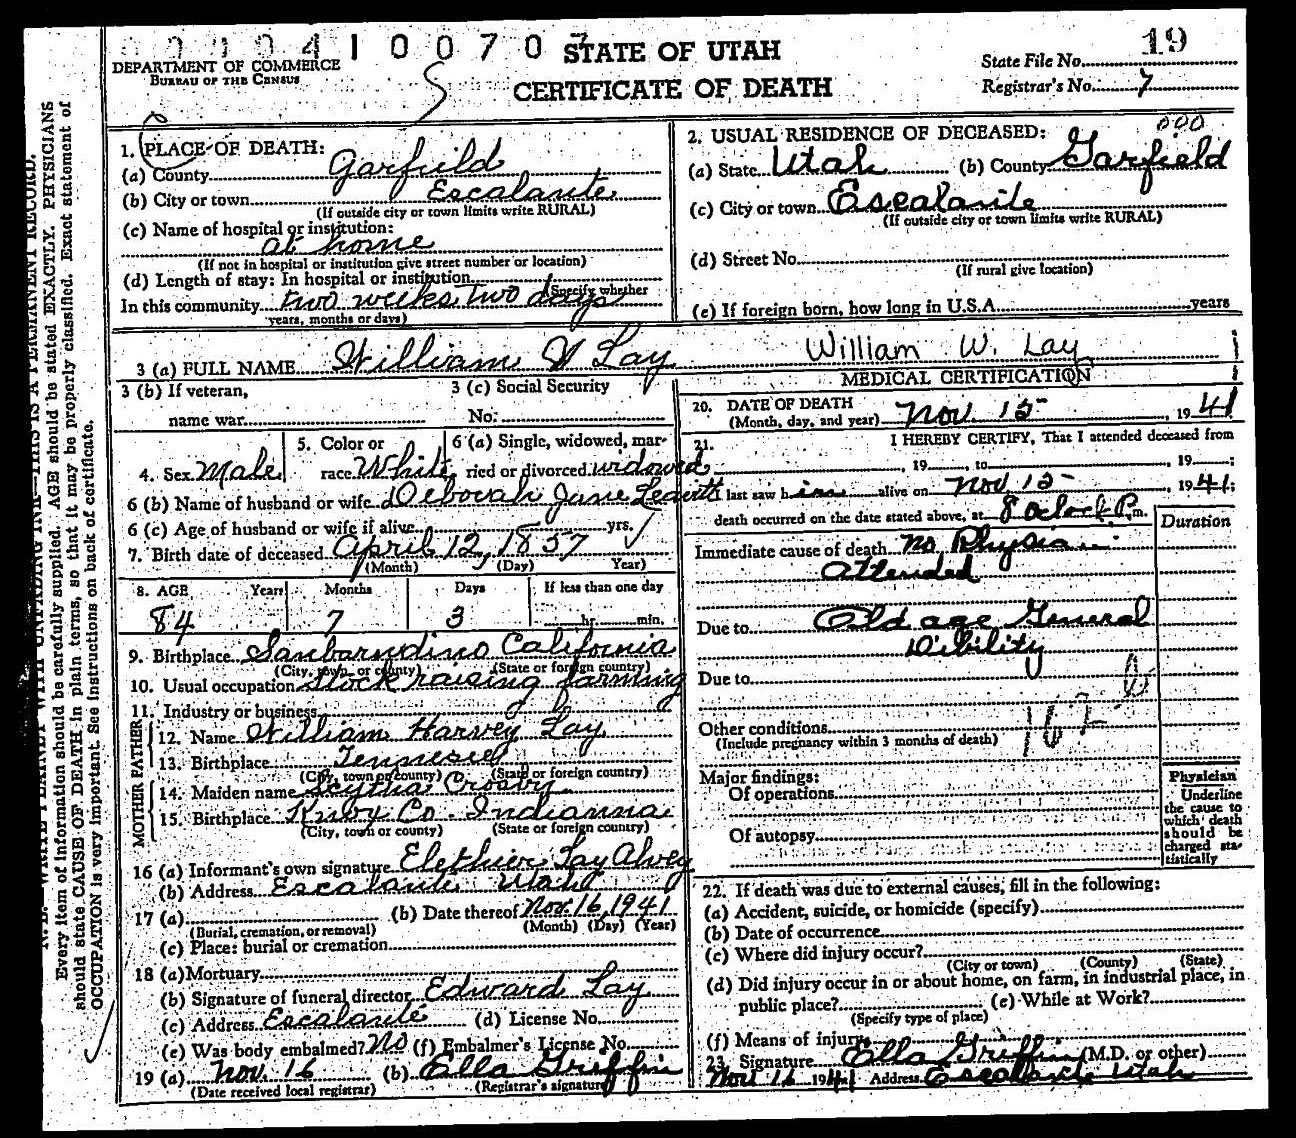 0 0 0 0 4 1 0 0 7 0 7
STATE OF UTAH
CERTIFICATE OF DEATH
DEPARTMENT OF COMMERCE
BUREAU OF THE CENSUS
19
State File No.
Registrar's No. 7
1. PLACE OF DEATH:
(a) County Garfield
(b) City or town Escalante
(If outside city or town limits write RURAL)
(c) Name of hospital or institution:
at home
(If not in hospital or institution give street number or location)
(d) Length of stay: In hospital or institution
(Specify whether
In this community two weeks two days
years, months or days)
000
2. USUAL RESIDENCE OF DECEASED:
(a) State Utah (b) County Garfield
(c) City or town Escalante
(If outside city or town limits write RURAL)
(d) Street No.
(If rural give location)
(e) If foreign born, how long in U.S.A. years
3 (a) FULL NAME William W Lay William W. Lay
3 (b) If veteran,
name war
3 (c) Social Security
No.
4. Sex Male
5. Color or
race White
6 (a) Single, widowed, mar-
ried or divorced widowed
6 (b) Name of husband or wife Deborah Jane Leavitt
6 (c) Age of husband or wife if alive yrs.
7. Birth date of deceased April 12, 1857
(Month) (Day) Year)
8. AGE Years Months Days If less than one day
84 7 3 hr. min.
9. Birthplace Sanbarndino California
(City, town, or county) (State or foreign country)
10. Usual occupation Stock raising farming
11. Industry or business
FATHER
12. Name William Harvey Lay
13. Birthplace Tennesse
(City, town or county) (State or foreign country)
MOTHER
14. Maiden name Scytha Crosby
15. Birthplace Knox Co. Indianna
(City, town or county) (State or foreign country)
16 (a) Informant's own signature Elethier Lay Alvey
(b) Address Escalante Utah
17 (a) (b) Date thereof Nov. 16, 1941
(Burial, cremation, or removal) (Month) (Day) (Year)
(c) Place: burial or cremation
18 (a) Mortuary
(b) Signature of funeral director Edward Lay
(c) Address Escalante (d) License No.
(e) Was body embalmed? No (f) Embalmer's License No.
19 (a) Nov. 16 (b) Ella Griffin
(Date received local registrar) (Registrar's signature)
MEDICAL CERTIFICATION
20. DATE OF DEATH
(Month, day, and year) Nov. 15, 1941
21. I HEREBY CERTIFY, That I attended deceased from
, 19 , to , 19 ;
I last saw him alive on Nov 15, 1941;
death occurred on the date stated above, at 8 oclock P.m.
Duration
Immediate cause of death no Physician
Attended
Due to Old age General
Dibility
Due to
162 b
Other conditions
(Include pregnancy within 3 months of death)
Major findings:
Of operations
Of autopsy
Physician
Underline
the cause to
which death
should be
charged sta-
tistically
22. If death was due to external causes, fill in the following:
(a) Accident, suicide, or homicide (specify)
(b) Date of occurrence
(c) Where did injury occur?
(City or town) (County) (State)
(d) Did injury occur in or about home, on farm, in industrial place, in
public place? (e) While at Work?
(Specify type of place)
(f) Means of injury
23. Signature Ella Griffin (M.D. or other)
Nov 16 1941 Address Escalante Utah
N. B. WRITE PLAINLY WITH UNFADING INK—THIS IS A PERMANENT RECORD.
Every item of information should be carefully supplied. AGE should be stated EXACTLY. PHYSICIANS
should state CAUSE OF DEATH in plain terms, so that it may be properly classified. Exact statement of
OCCUPATION is very important. See instructions on back of certificate.